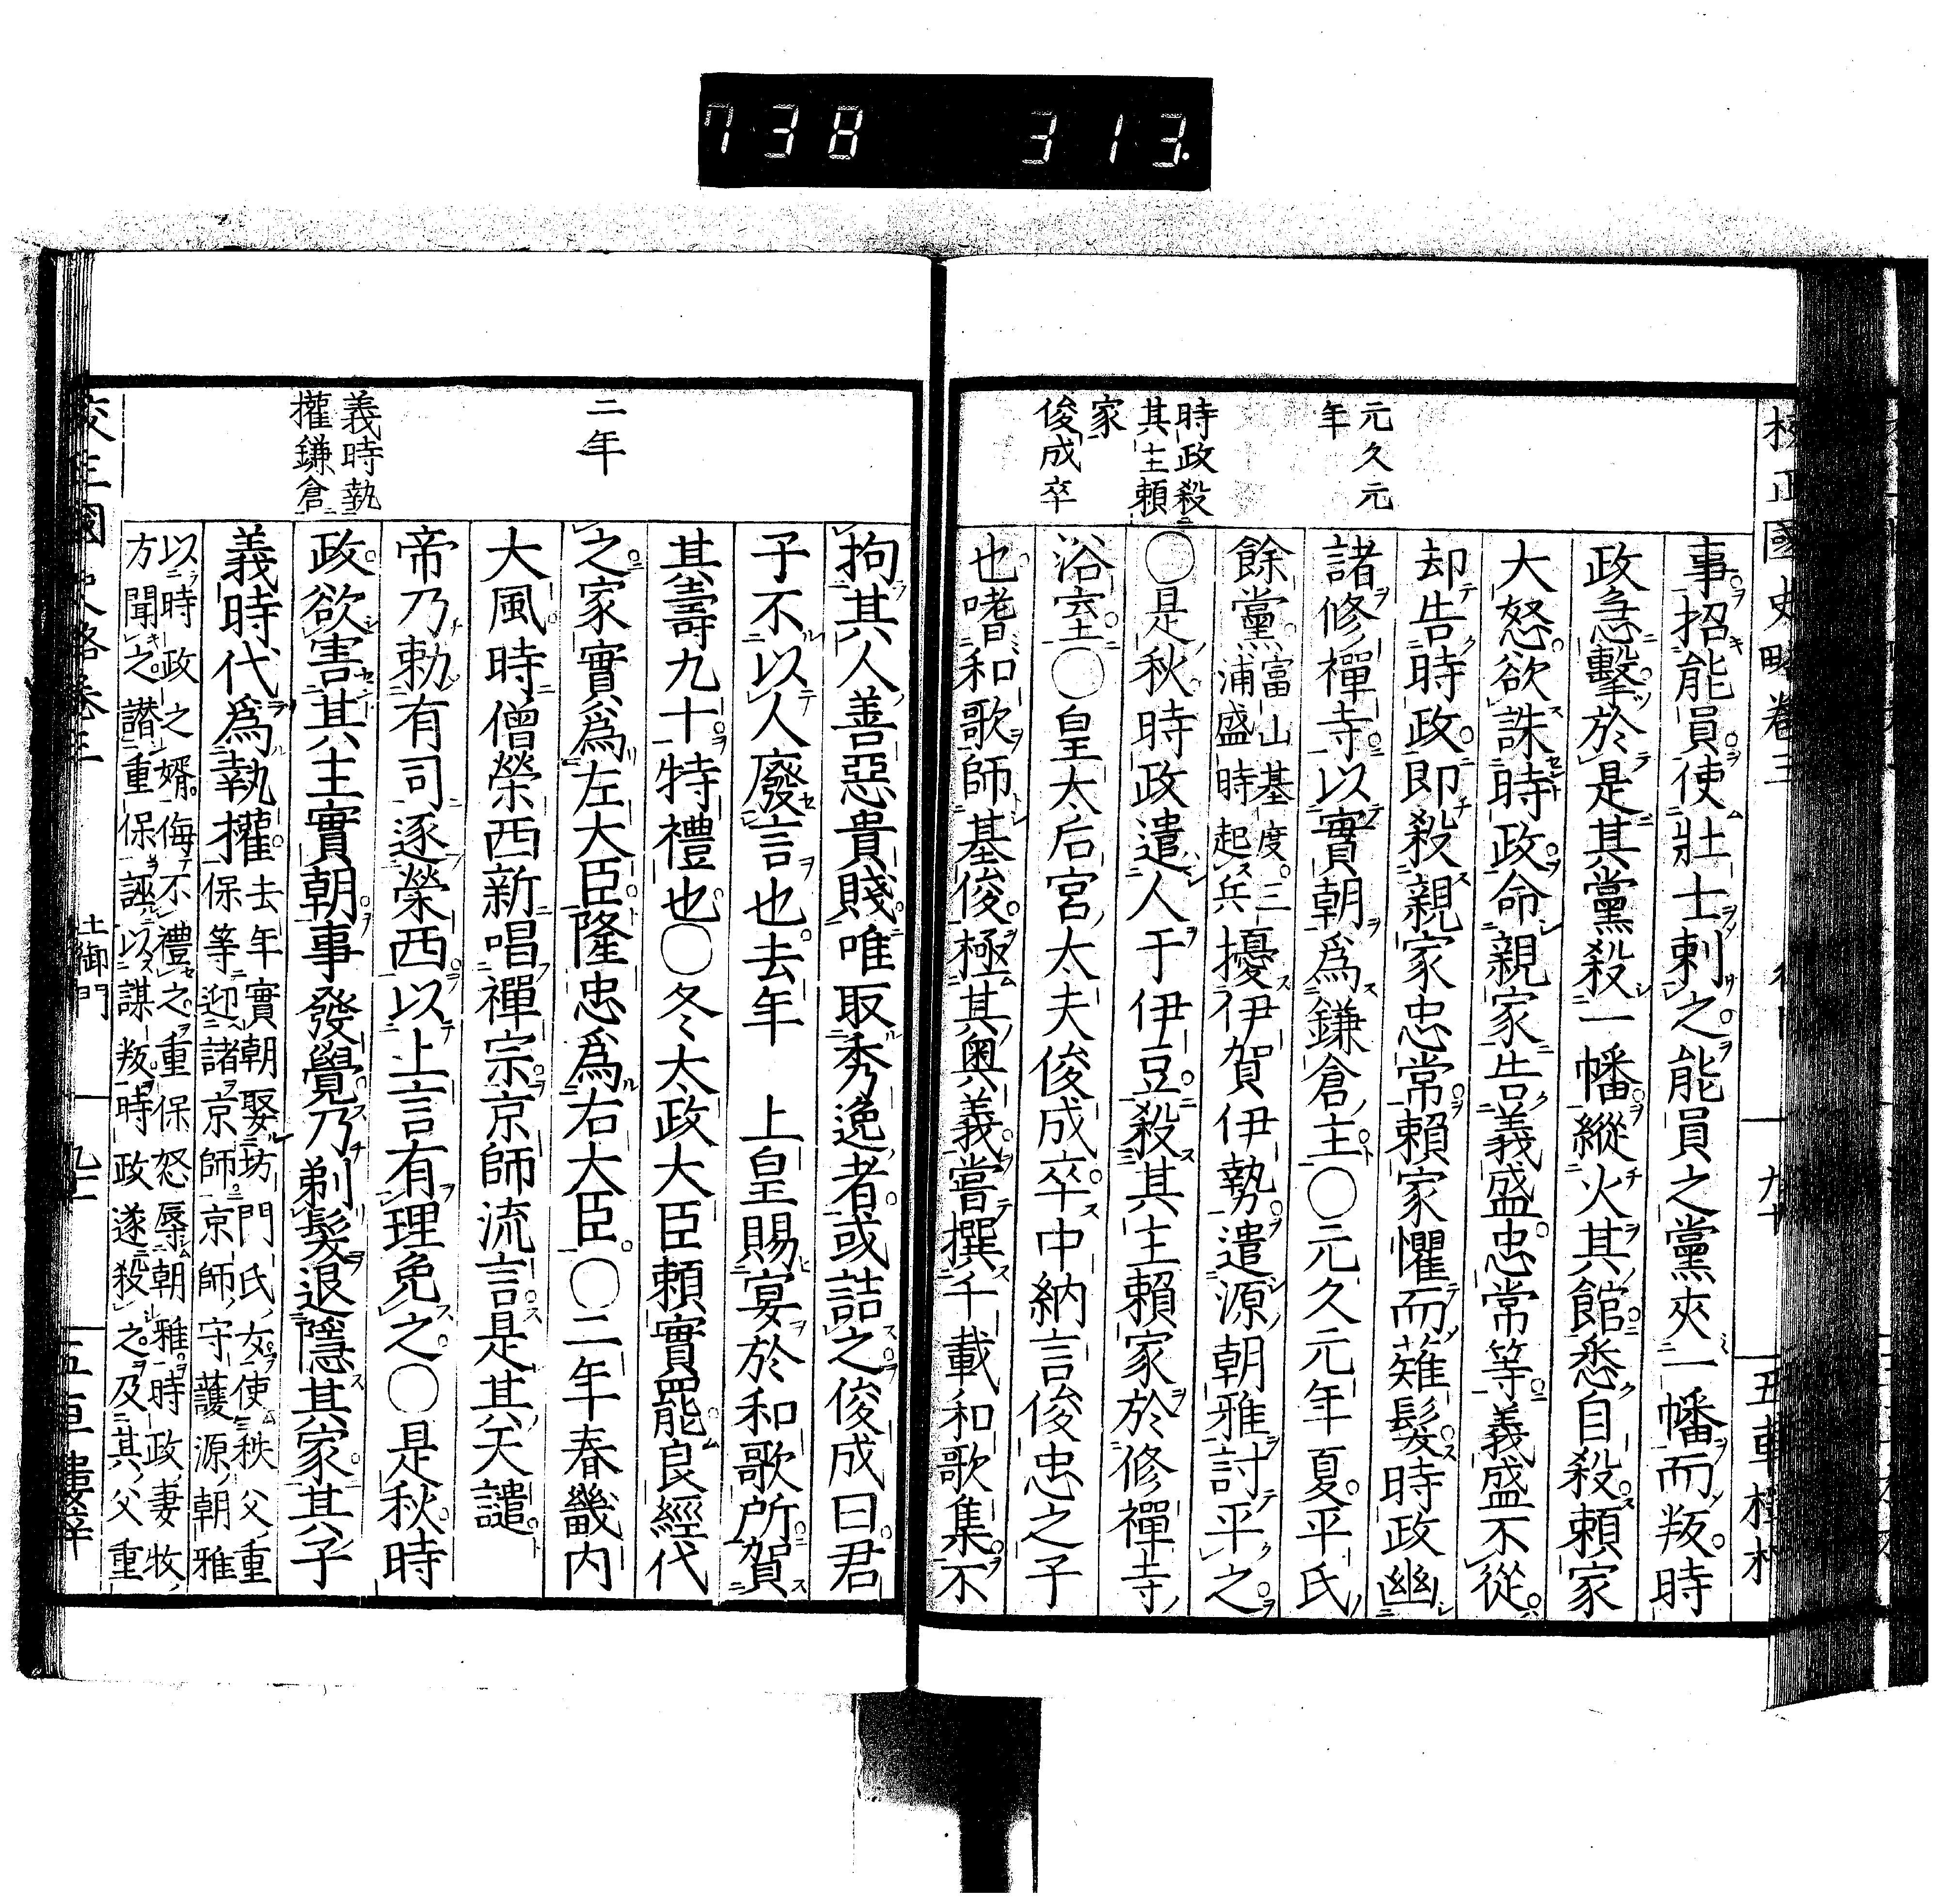 738 313
校正國史略卷三
九十
五車樓朴
元久元
年
時政殺
其主賴
家
俊成卒
事招能員使壯士刺之能員之黨夾一幡而叛時
政急擊於是其黨殺一幡縱火其館悉自殺賴家
大怒欲誅時政命親家告義盛忠常等義盛不從
却告時政即殺親家忠常賴家懼而薙髮時政幽
諸修禪寺以實朝爲鎌倉主〇元久元年夏平氏
餘黨富山基度三
浦盛時起兵擾伊賀伊勢遣源朝雅討平之
〇是秋時政遣人于伊豆殺其主賴家於修禪寺
浴室〇皇太后宮太夫俊成卒中納言俊忠之子
也嗜和歌師基俊極其奧義嘗撰千載和歌集不
二年
義時執
權鎌倉
拘其人善惡貴賤唯取秀逸者或詰之俊成曰君
子不以人廢言也去年 上皇賜宴於和歌所賀
其壽九十特禮也〇冬太政大臣賴實罷良經代
之家實爲左大臣隆忠爲右大臣〇二年春畿內
大風時僧榮西新唱禪宗京師流言是其天譴
帝乃勅有司逐榮西以上言有理免之〇是秋時
政欲害其主實朝事發覺乃剃髮退隱其家其子
義時代爲執權去年實朝娶坊門氏女使秩父重
保等迎諸京師京師守護源朝雅
以時政之婿侮不禮之重保怒辱朝雅時政妻牧
方聞之譖重保誣以謀叛時政遂殺之及其父重
土御門
五車樓梓